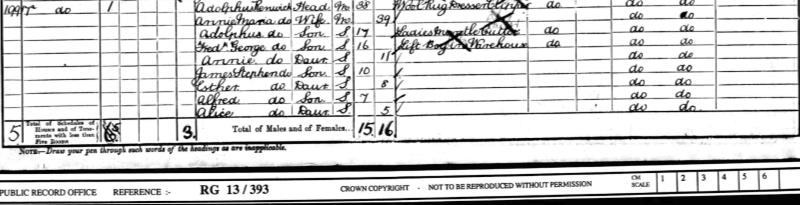 199 do 1 Adolphus Renwick Head M 38 Wool Rug Dresser do do do
Annie Maria do Wife M 39 do do
Adolphus do Son S 17 Ladies Cutter do do do
Fredk George do Son S 16 Lift Boy in Warehouse do do do
Annie do Daur S 11 do do
James Stephen do Son S 10 do do
Esther do Daur S 8 do do
Alfred do Son S 7 do do
Alice do Daur S 5 do do
5 Total of Schedules of Houses and of Tenements with less than Five Rooms 3. Total of Males and of Females.. 15 16
NOTE.—Draw your pen through such words of the headings as are inapplicable.
PUBLIC RECORD OFFICE REFERENCE :- RG 13/393 CROWN COPYRIGHT - NOT TO BE REPRODUCED WITHOUT PERMISSION CM SCALE 1 2 3 4 5 6